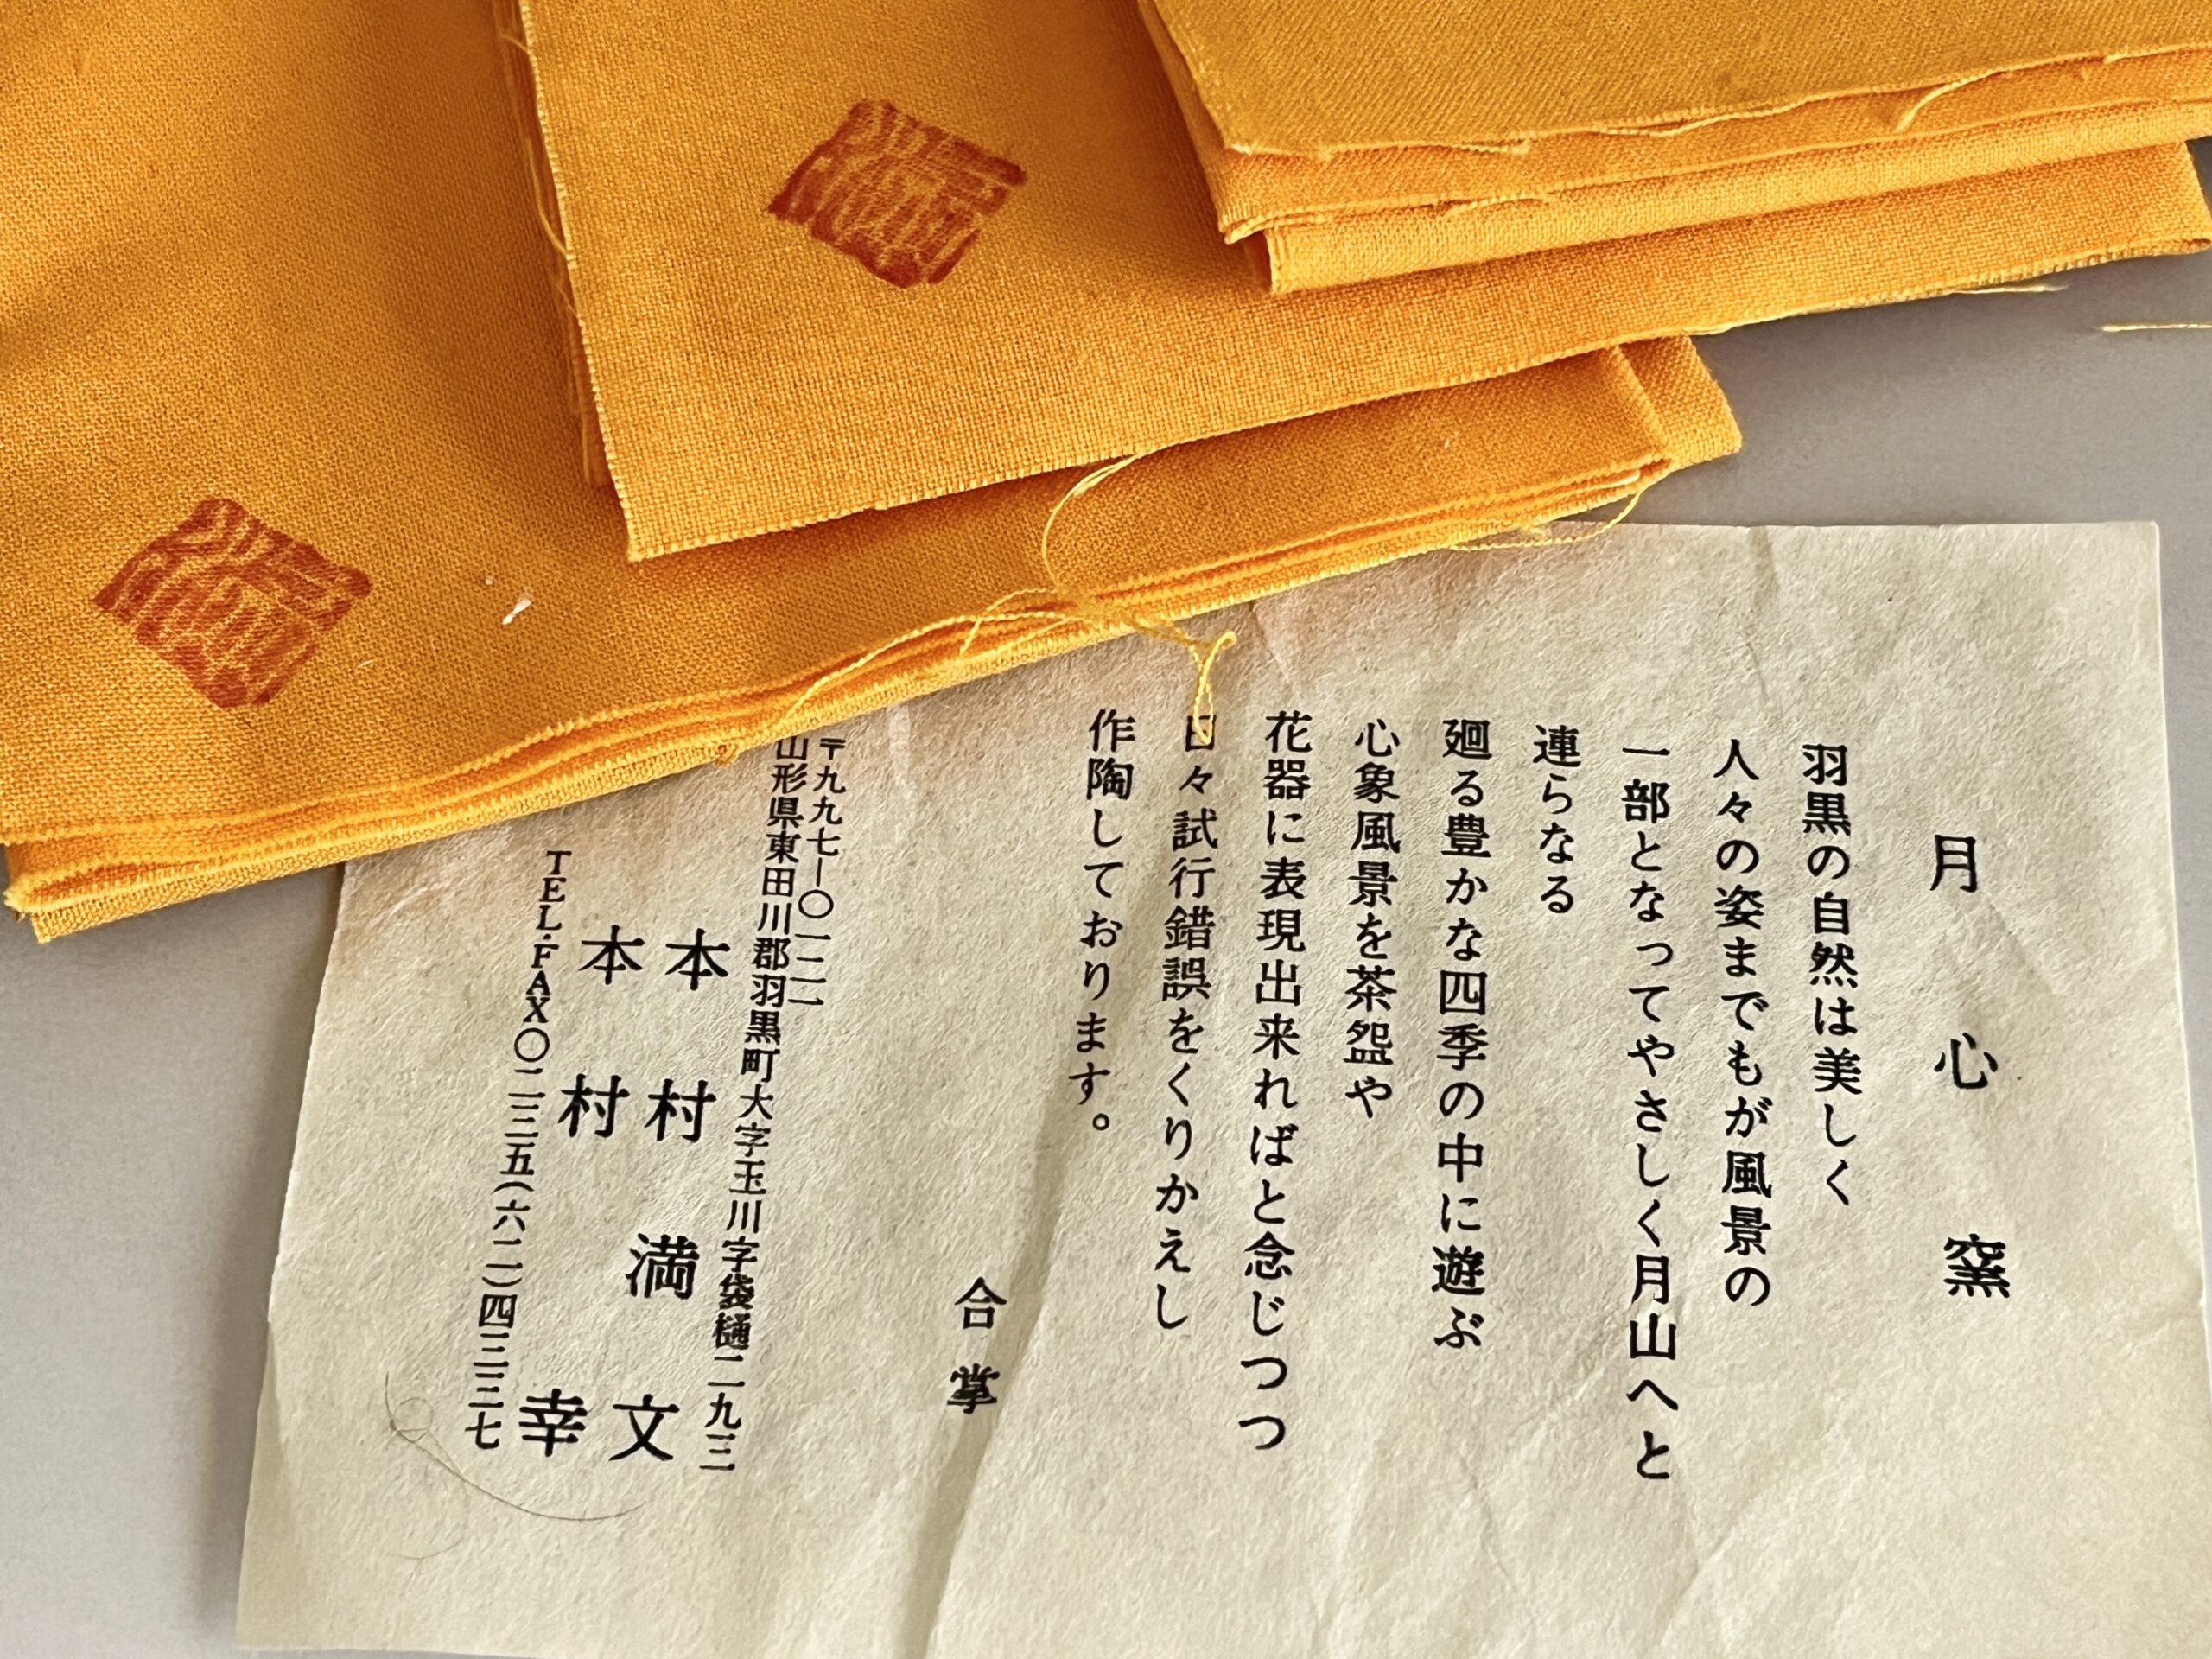 月心窯
羽黒の自然は美しく
人々の姿までもが風景の
一部となってやさしく月山へと
連らなる
廻る豊かな四季の中に遊ぶ
心象風景を茶盌や
花器に表現出来ればと念じつつ
日々試行錯誤をくりかえし
作陶しております。
合掌
〒九九七―〇一二一
山形県東田川郡羽黒町大字玉川字袋樋二九三
本村満文
本村幸
TEL・FAX〇二三五(六二)四三三七